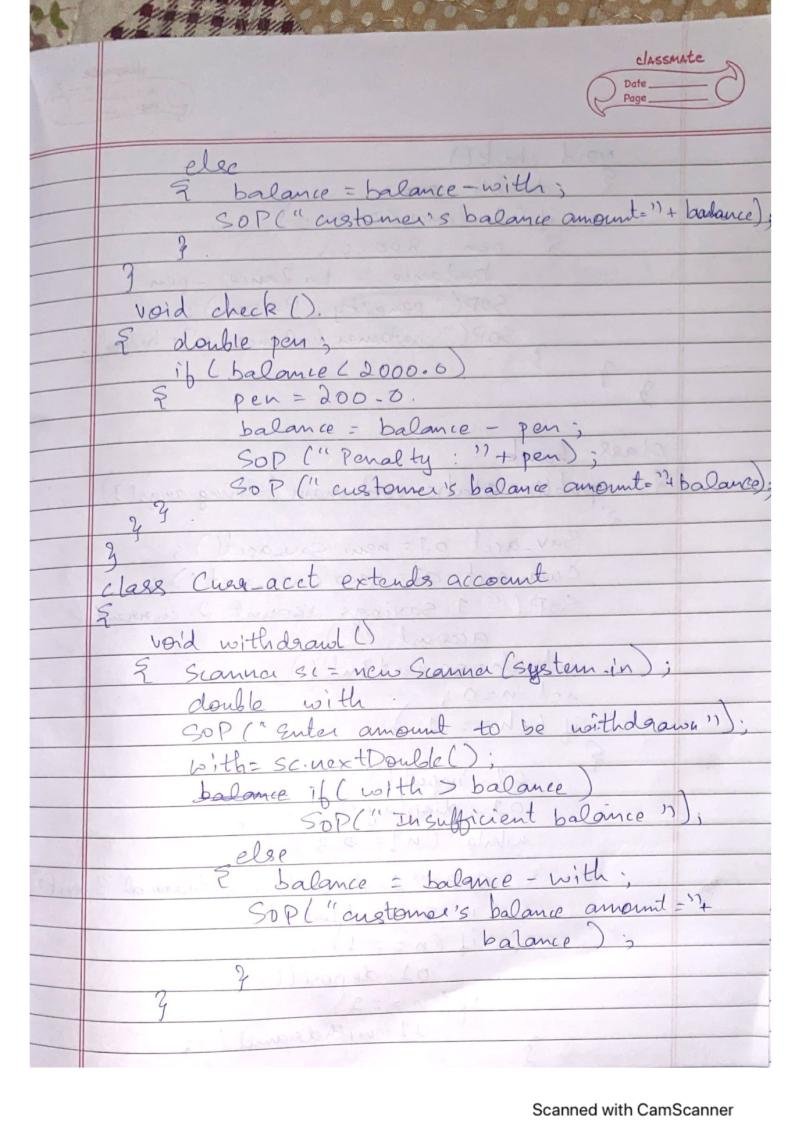 classmate
Date
Page
else
{ balance = balance - with ;
SOP(" customer's balance amount= "+ balance);
}
}
void check ().
{ double pen ;
if ( balance < 2000.0)
{ pen = 200.0.
balance = balance - pen ;
SOP (" Penalty : "+ pen) ;
SOP (" customer's balance amount= "+ balance);
} }
}
class Curr_acct extends account
{
void withdrawl ()
{ Scanner sc = new Scanner (system.in) ;
double with
SOP (" Enter amount to be withdrawn ");
with= sc.nextDouble() ;
balance if ( with > balance )
SOP(" Insufficient balance ");
else
{ balance = balance - with ;
SOP( " customer's balance amount = "+
balance ) ;
}
}
Scanned with CamScanner